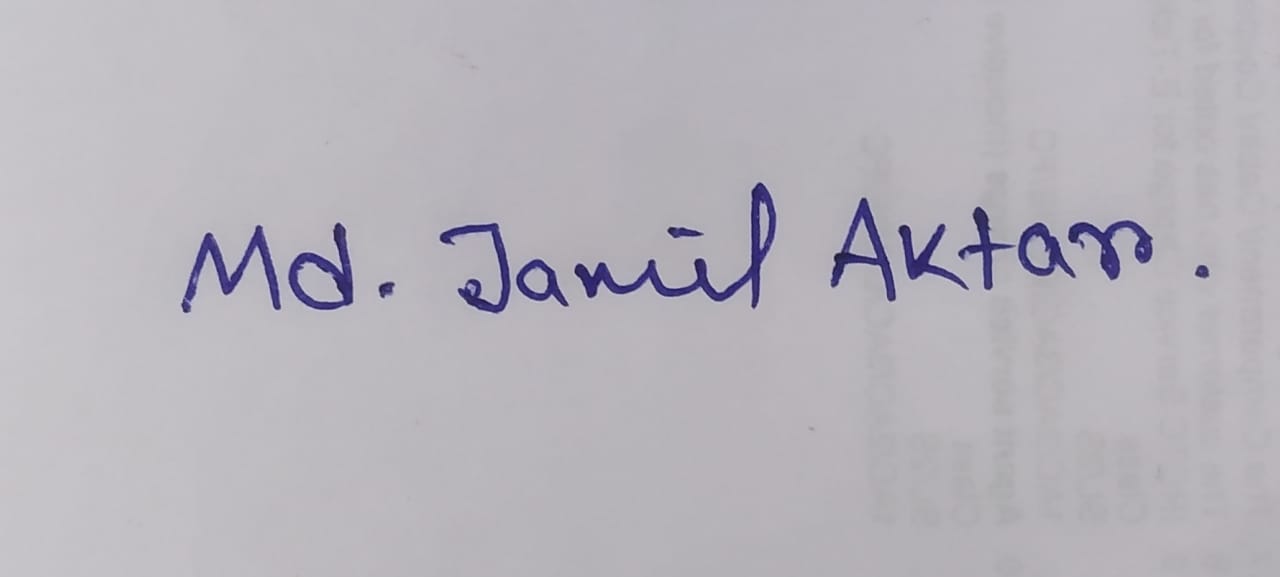 Md. Jamil Aktar.